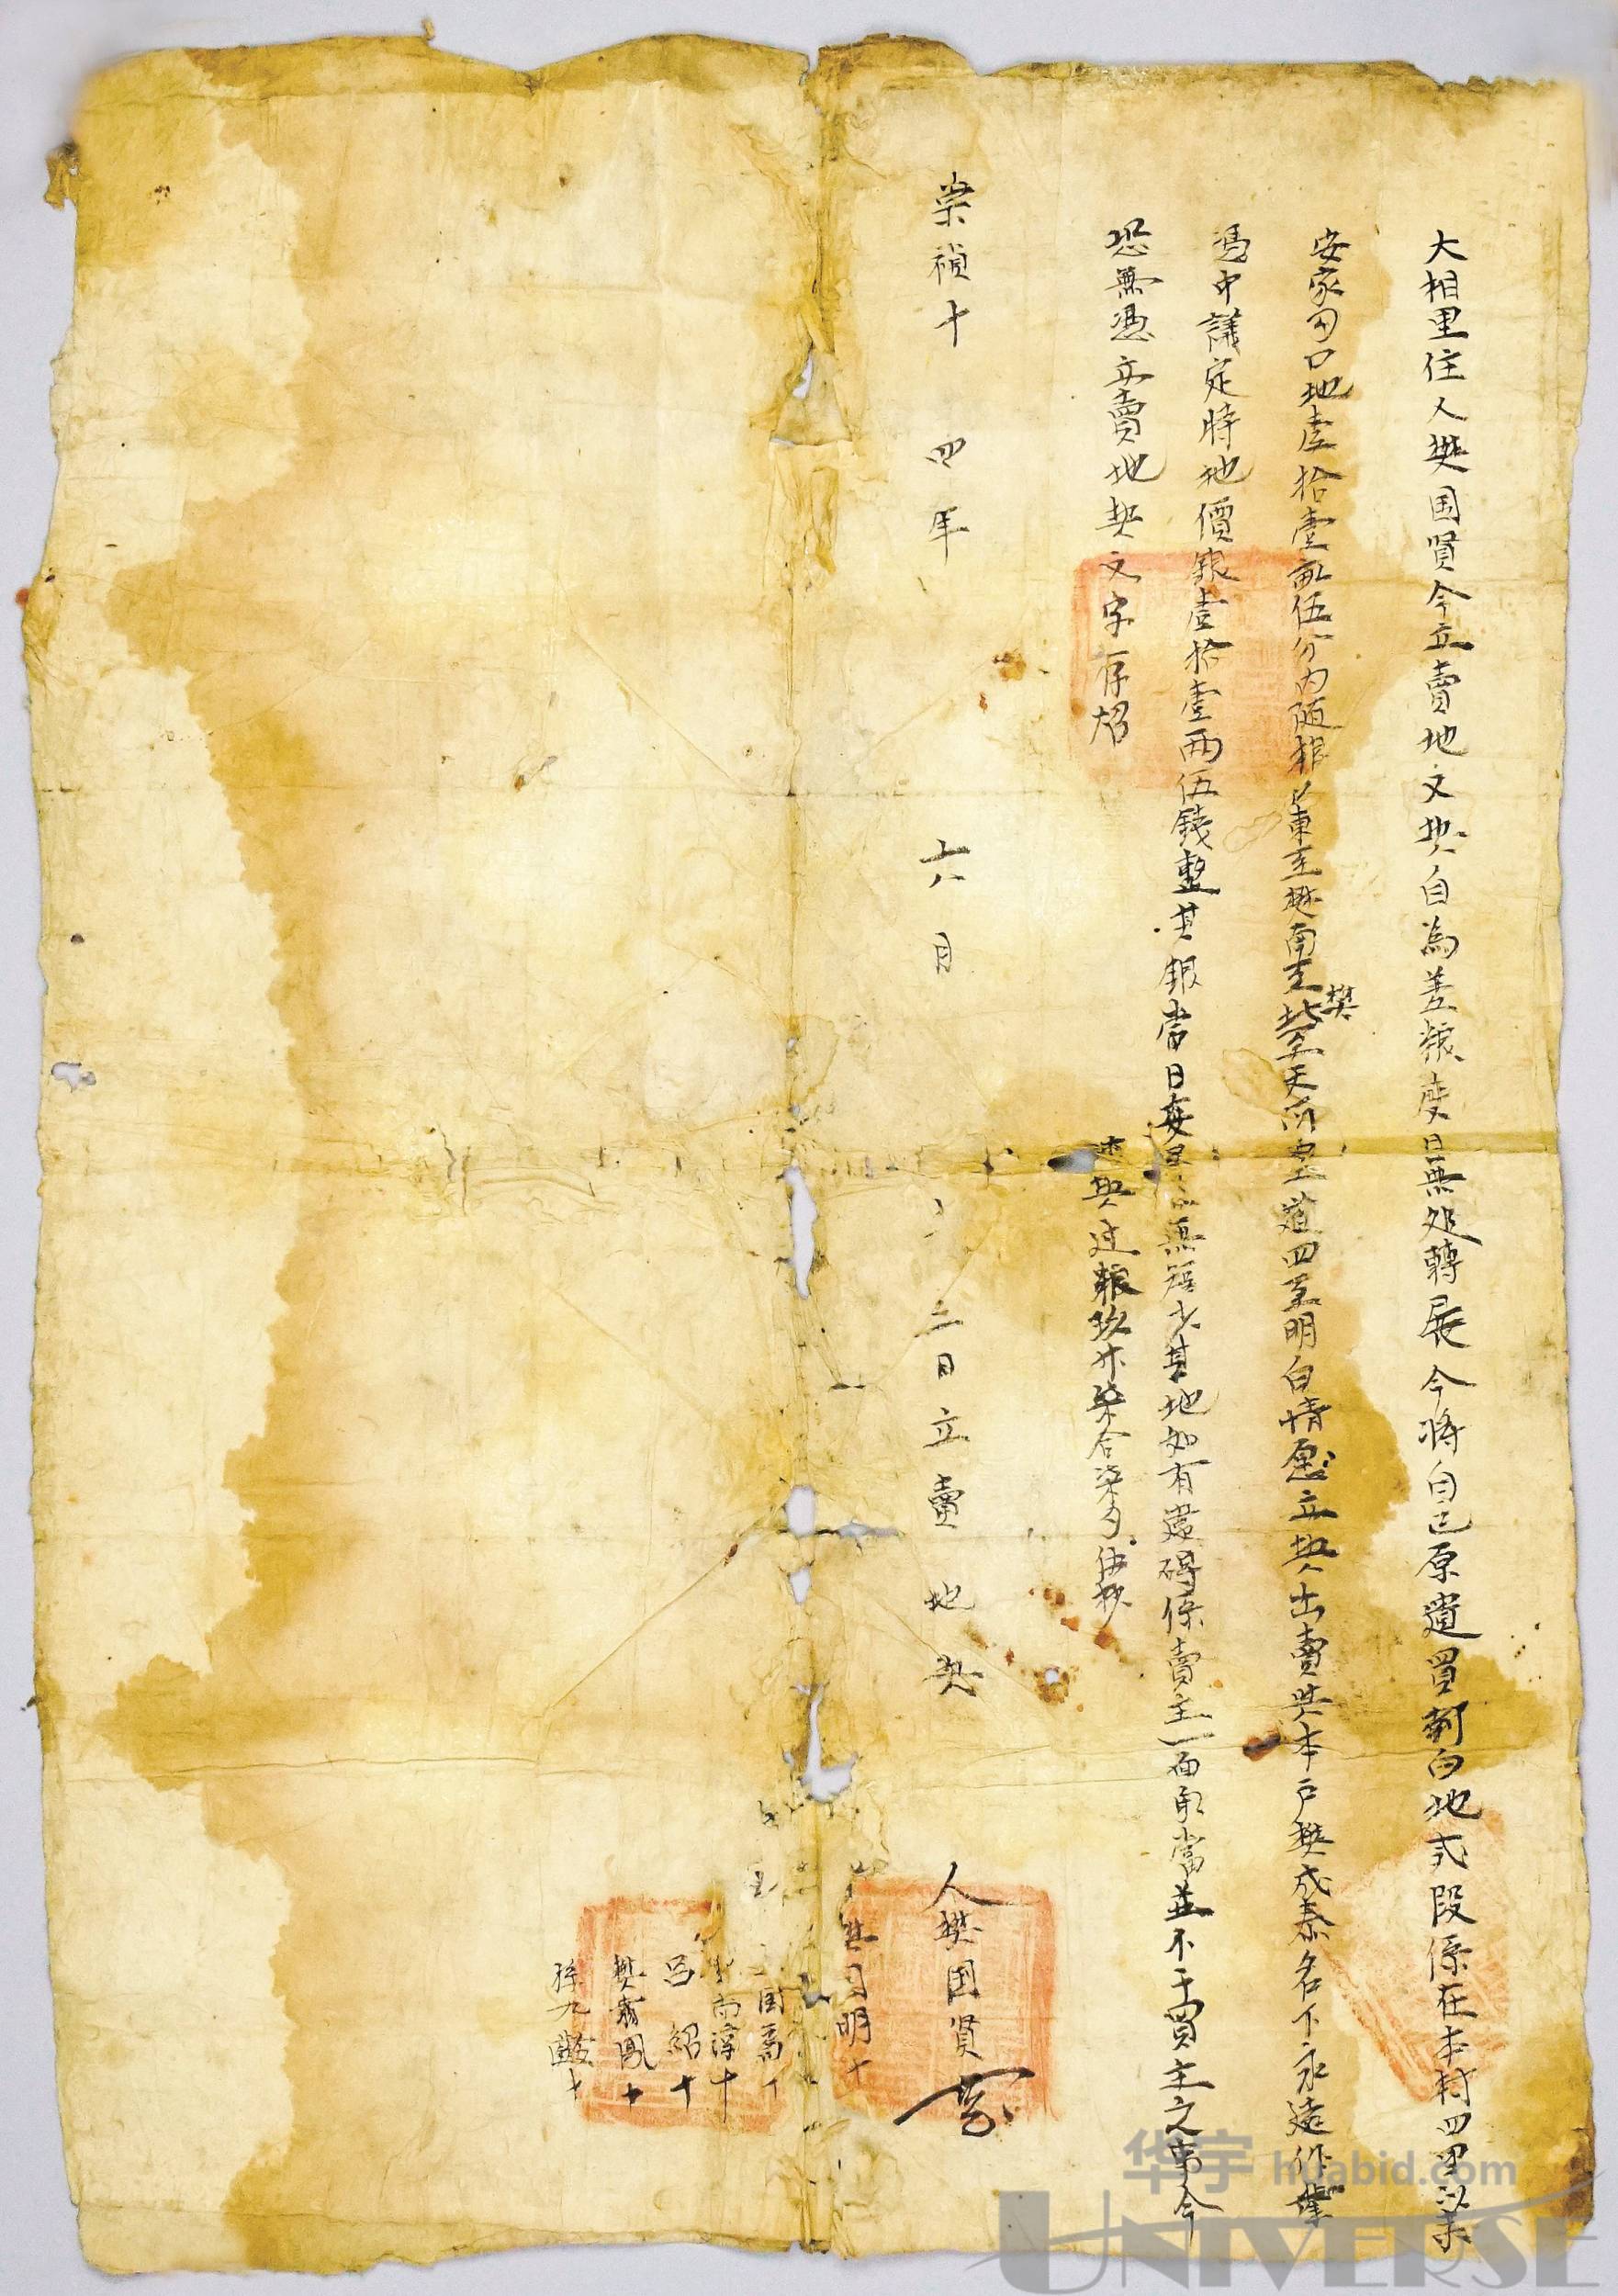 大相里住人樊国賢今立賣地文契自為差粮度日無处轉展今將自己原遺買荊白地弍段係在本村四里以來
安家勾口地壹拾壹畝伍分內随粮東至樊南至樊北至天西至道四至明白情愿立契出賣與本戶樊成泰名下永遠作業
憑中議定時地價銀壹拾壹两伍錢整其銀當日交足無短少其地如有違碍係賣主一面承當並不干買主之事今
恐無憑立賣地契文字存炤
本契过粮玖升柒合柒勺伍抄
崇禎十四年六月 二日立賣地契人樊国賢
国明十
国
南淳十
呂紹十
樊 鳳十
孫九 十
华宇 huabid.com
UNIVERSE